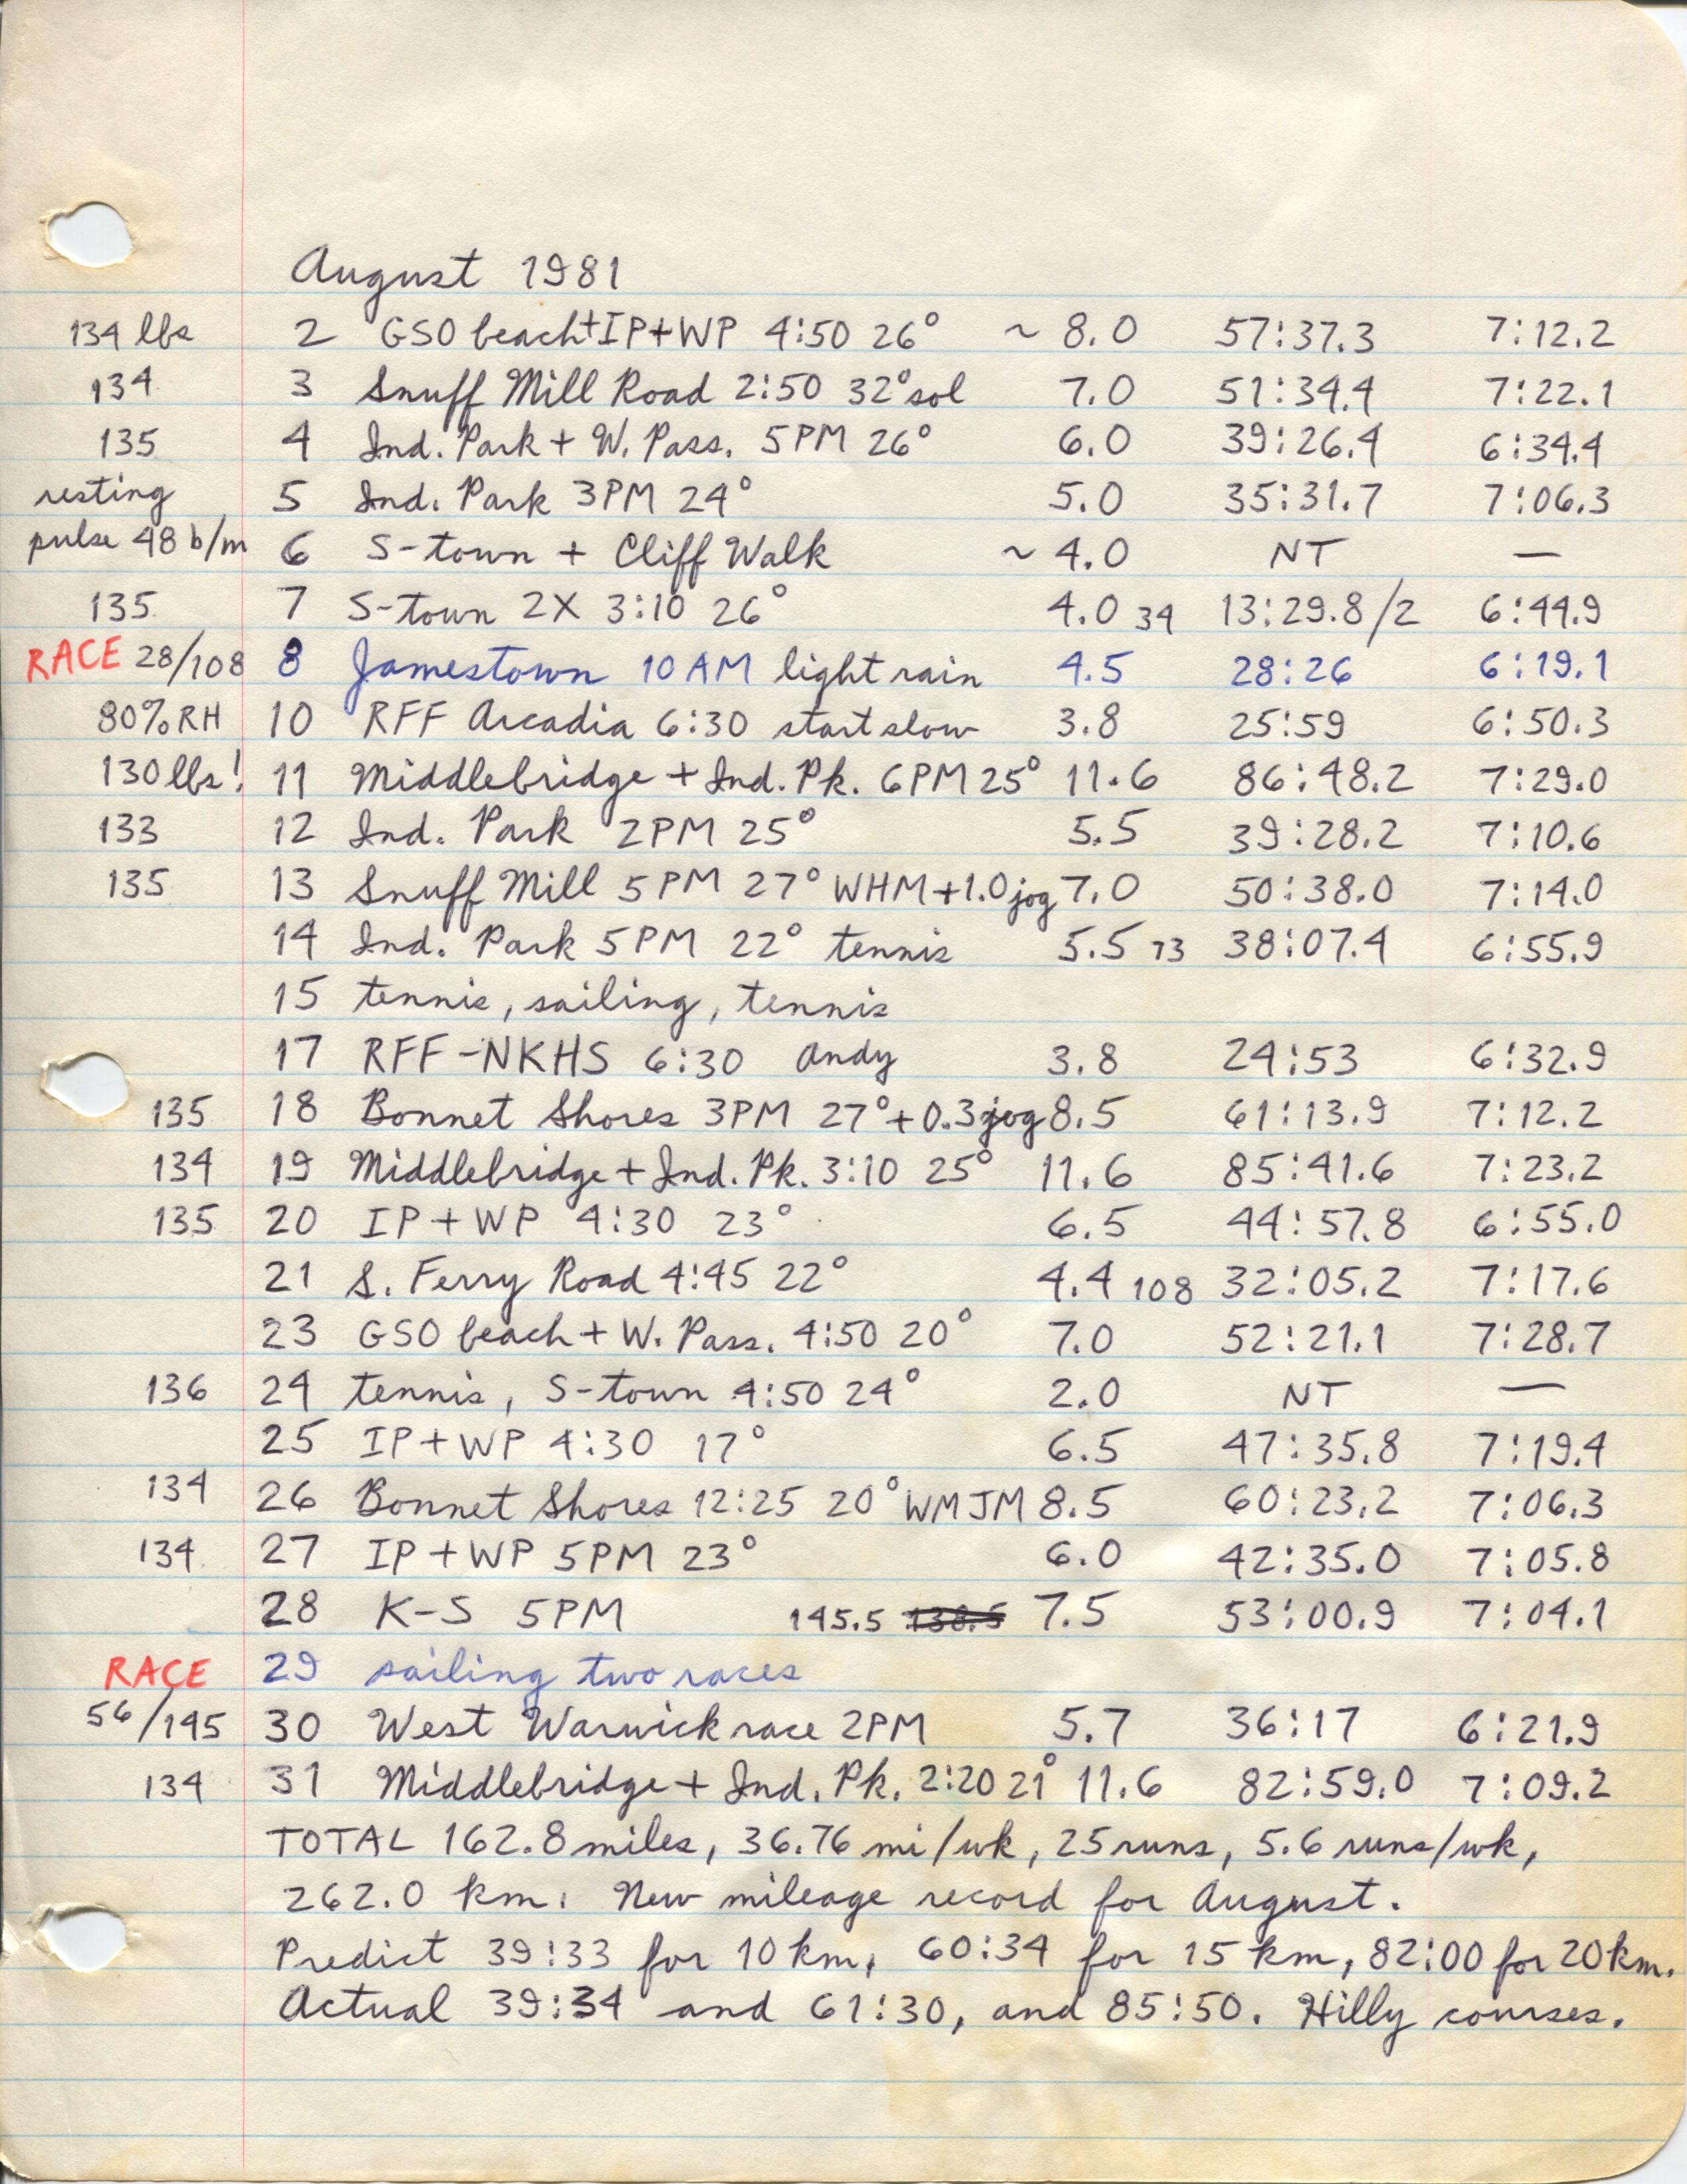 August 1981
134 lbs 2 GSO beach+IP+WP 4:50 26° ~ 8.0 57:37.3 7:12.2
134 3 Snuff Mill Road 2:50 32° sol 7.0 51:34.4 7:22.1
135 4 Ind. Park + W. Pass. 5PM 26° 6.0 39:26.4 6:34.4
resting 5 Ind. Park 3PM 24° 5.0 35:31.7 7:06.3
pulse 48 b/m 6 S-town + Cliff Walk ~ 4.0 NT —
135 7 S-town 2X 3:10 26° 4.0 34 13:29.8/2 6:44.9
RACE 28/108 8 Jamestown 10 AM light rain 4.5 28:26 6:19.1
80% RH 10 RFF Arcadia 6:30 start slow 3.8 25:59 6:50.3
130 lbs! 11 Middlebridge + Ind. Pk. 6PM 25° 11.6 86:48.2 7:29.0
133 12 Ind. Park 2PM 25° 5.5 39:28.2 7:10.6
135 13 Snuff Mill 5PM 27° WHM+1.0 jog 7.0 50:38.0 7:14.0
14 Ind. Park 5PM 22° tennis 5.5 73 38:07.4 6:55.9
15 tennis, sailing, tennis
17 RFF-NKHS 6:30 Andy 3.8 24:53 6:32.9
135 18 Bonnet Shores 3PM 27°+0.3 jog 8.5 61:13.9 7:12.2
134 19 Middlebridge + Ind. Pk. 3:10 25° 11.6 85:41.6 7:23.2
135 20 IP+WP 4:30 23° 6.5 44:57.8 6:55.0
21 S. Ferry Road 4:45 22° 4.4 108 32:05.2 7:17.6
23 GSO beach + W. Pass. 4:50 20° 7.0 52:21.1 7:28.7
136 24 tennis, S-town 4:50 24° 2.0 NT —
25 IP+WP 4:30 17° 6.5 47:35.8 7:19.4
134 26 Bonnet Shores 12:25 20° WM JM 8.5 60:23.2 7:06.3
134 27 IP+WP 5PM 23° 6.0 42:35.0 7:05.8
28 K-S 5PM 145.5 138.5 7.5 53:00.9 7:04.1
RACE 29 sailing two races
56/145 30 West Warwick race 2PM 5.7 36:17 6:21.9
134 31 Middlebridge + Ind. Pk. 2:20 21° 11.6 82:59.0 7:09.2
TOTAL 162.8 miles, 36.76 mi/wk, 25 runs, 5.6 runs/wk,
262.0 km. New mileage record for August.
Predict 39:33 for 10 km, 60:34 for 15 km, 82:00 for 20 km.
Actual 39:34 and 61:30, and 85:50. Hilly courses.